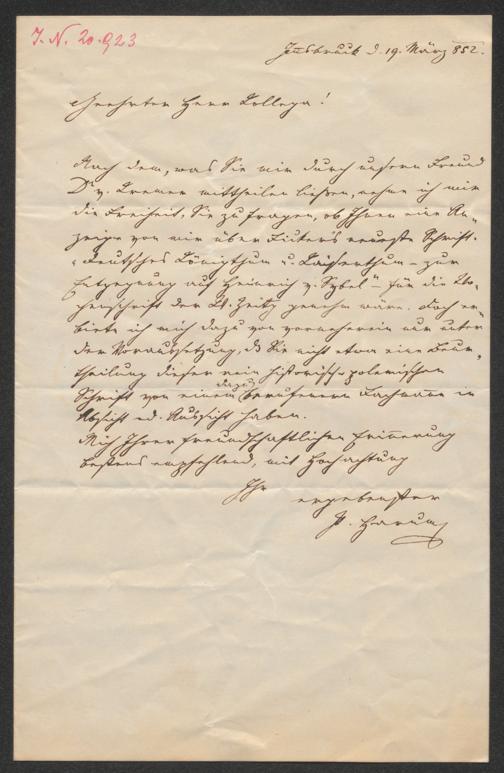 I. N. 20.923
Innsbruck d. 19. März 852.
Geehrter Herr Kollega!
Nach dem, was Sie mir durch unsern Freund
Dr v. Kremer mittheilen ließen, nehme ich mir
die Freiheit, Sie zu fragen, ob Ihnen eine An-
zeige von mir über Ficker's neueste Schrift:
"Deutsches Königthum u. Kaiserthum – zur
Entgegnung auf Heinrich v. Sybel" – für die Wo-
chenschrift der Wr. Zeitg genehm wäre. Doch er-
biete ich mich dazu von vorneherein nur unter
der Voraussetzung, dß Sie nicht etwa eine Beur-
theilung dieser rein historisch-polemischen
Schrift von einem dazu berufenern Fachmann in
Absicht od. Aussicht haben.
Mich Ihrer freundschaftlichen Erinnerung
bestens empfehlend, mit Hochachtung
Ihr
ergebenster
P. Harum